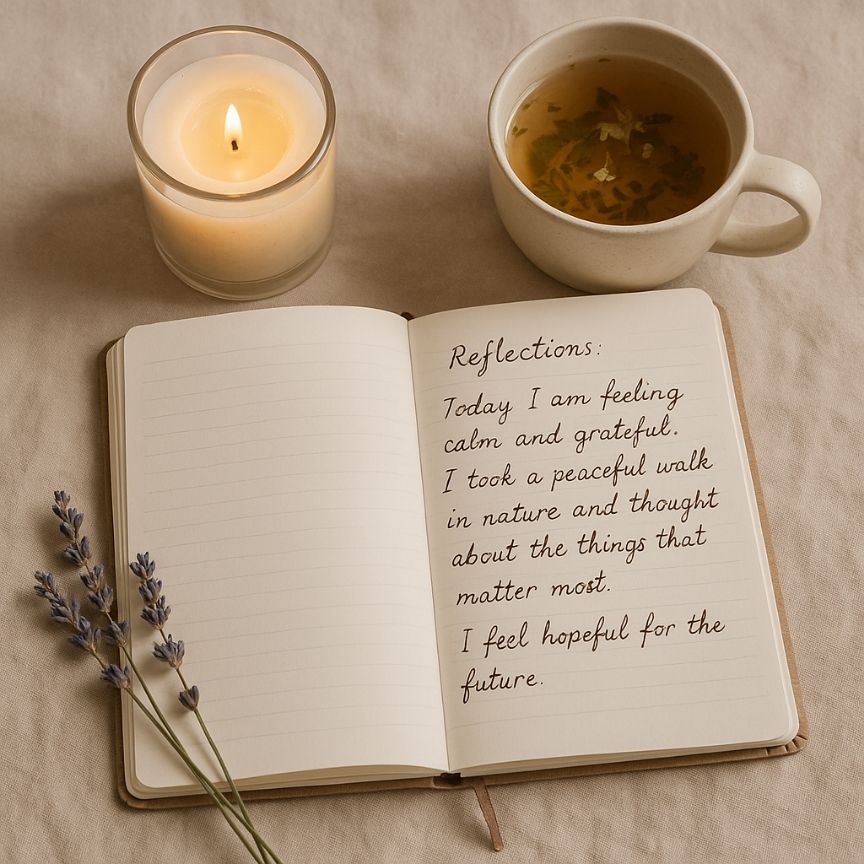 Reflections:
Today I am feeling
calm and grateful.
I took a peaceful walk
in nature and thought
about the things that
matter most.
I feel hopeful for the
future.